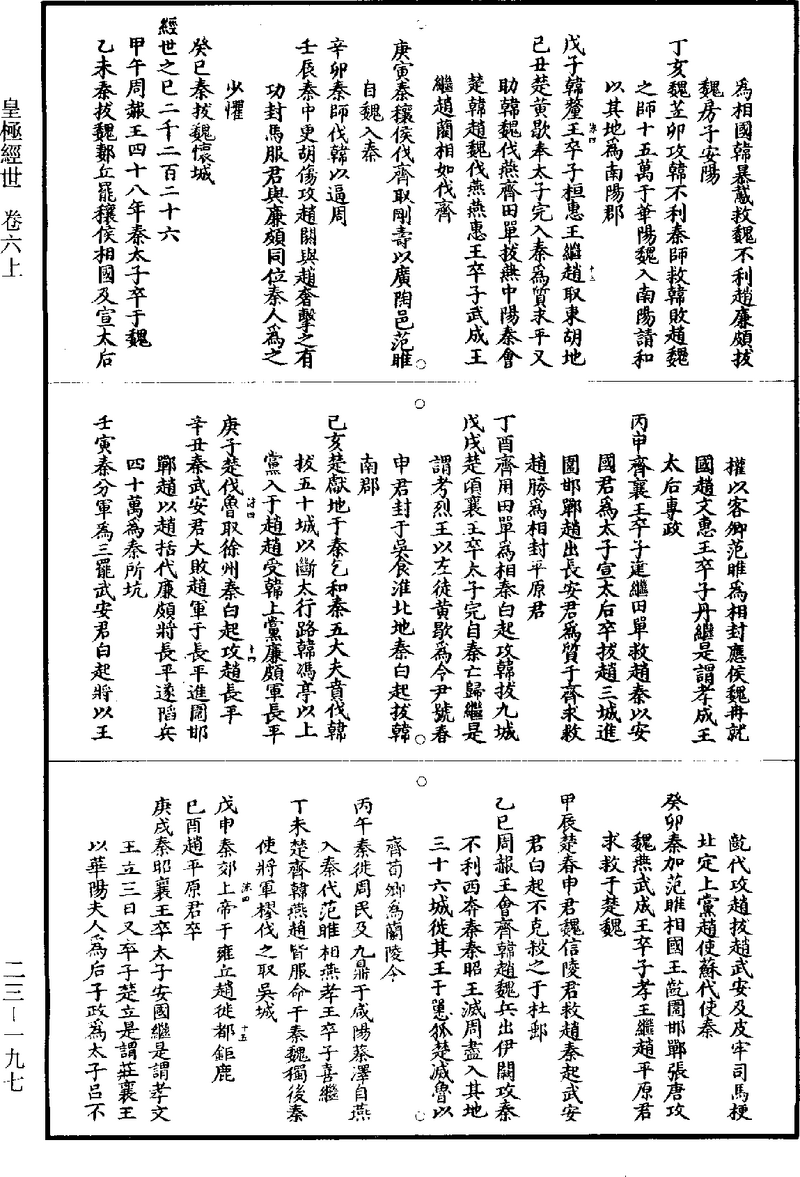 皇極經世 卷六上
二三—一九七
為相國韓暴鳶救魏不利趙廉頗拔
魏房子安陽
丁亥魏芒卯攻韓不利秦師救韓敗趙魏
之師十五萬于華陽魏入南陽請和
以其地為南陽郡
戊子韓釐王卒子桓惠王繼趙取東胡地
己丑楚黃歇奉太子完入秦為質求平又
助韓魏伐燕齊田單拔燕中陽秦會
楚韓趙魏伐燕燕惠王卒子武成王
繼趙藺相如伐齊
庚寅秦穰侯伐齊取剛壽以廣陶邑范睢
自魏入秦
辛卯秦師伐韓以逼周
壬辰秦中更胡傷攻趙閼與趙奢擊之有
功封馬服君與廉頗同位秦人為之
少懼
癸巳秦拔魏懷城
經世之巳二千二百二十六
甲午周赧王四十八年秦太子卒于魏
乙未秦拔魏郪丘罷穰侯相國及宣太后
權以客卿范睢為相封應侯魏冉就
國趙文惠王卒子丹繼是謂孝成王
太后專政
丙申齊襄王卒子建繼田單救趙秦以安
國君為太子宣太后卒拔趙三城進
圍邯鄲趙出長安君為質于齊求救
趙勝為相封平原君
丁酉齊用田單為相秦白起攻韓拔九城
戊戌楚頃襄王卒太子完自秦亡歸繼是
謂考烈王以左徒黃歇為令尹號春
申君封于吳食淮北地秦白起拔韓
南郡
己亥楚獻地于秦乞和秦五大夫賁伐韓
拔五十城以斷太行路韓馮亭以上
黨入于趙趙受韓上黨廉頗軍長平
庚子楚伐魯取徐州秦白起攻趙長平
辛丑秦武安君大敗趙軍于長平進圍邯
鄲趙以趙括代廉頗將長平遂陷兵
四十萬為秦所坑
壬寅秦分軍為三罷武安君白起將以王
齕代攻趙拔趙武安及皮牢司馬梗
北定上黨趙使蘇代使秦
癸卯秦加范睢相國王齕圍邯鄲張唐攻
魏燕武成王卒子孝王繼趙平原君
求救于楚魏
甲辰楚春申君魏信陵君救趙秦起武安
君白起不克殺之于杜郵
乙巳周赧王會齊韓趙魏兵出伊闕攻秦
不利西奔秦秦昭王滅周盡入其地
三十六城徙其王于𢠸狐楚滅魯以
齊荀卿為蘭陵令
丙午秦徙周民及九鼎于咸陽蔡澤自燕
入秦代范睢相燕孝王卒子喜繼
丁未楚齊韓燕趙皆服命于秦魏獨後秦
使將軍摎伐之取吳城
戊申秦郊上帝于雍立趙徙都鉅鹿
己酉趙平原君卒
庚戌秦昭襄王卒太子安國繼是謂孝文
王立三日又卒子楚立是謂莊襄王
以華陽夫人為后子政為太子呂不